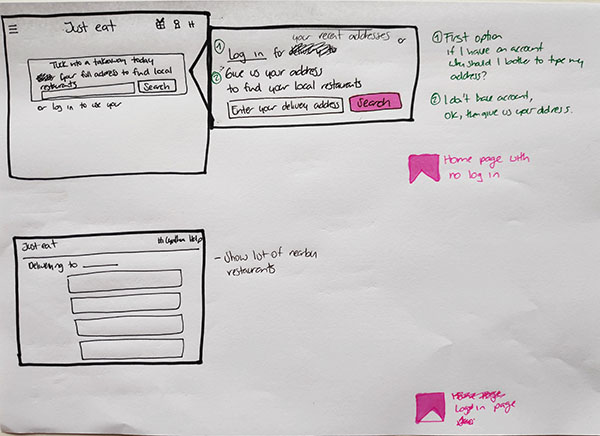 Just eat
H
Tuck into a takeaway today
your full address to find local
restaurants
Search
or log in to use your
① Log in for your recent addresses or
② Give us your address
to find your local restaurants
Enter your delivery address
Search
① First option
if I have an account
why should I bother to type my
address?
② I don't have account,
ok, then give us your address.
Home page with
no log in
Just eat
Hi Help
Delivering to
- Show list of nearby
restaurants
Home page
Logged in page